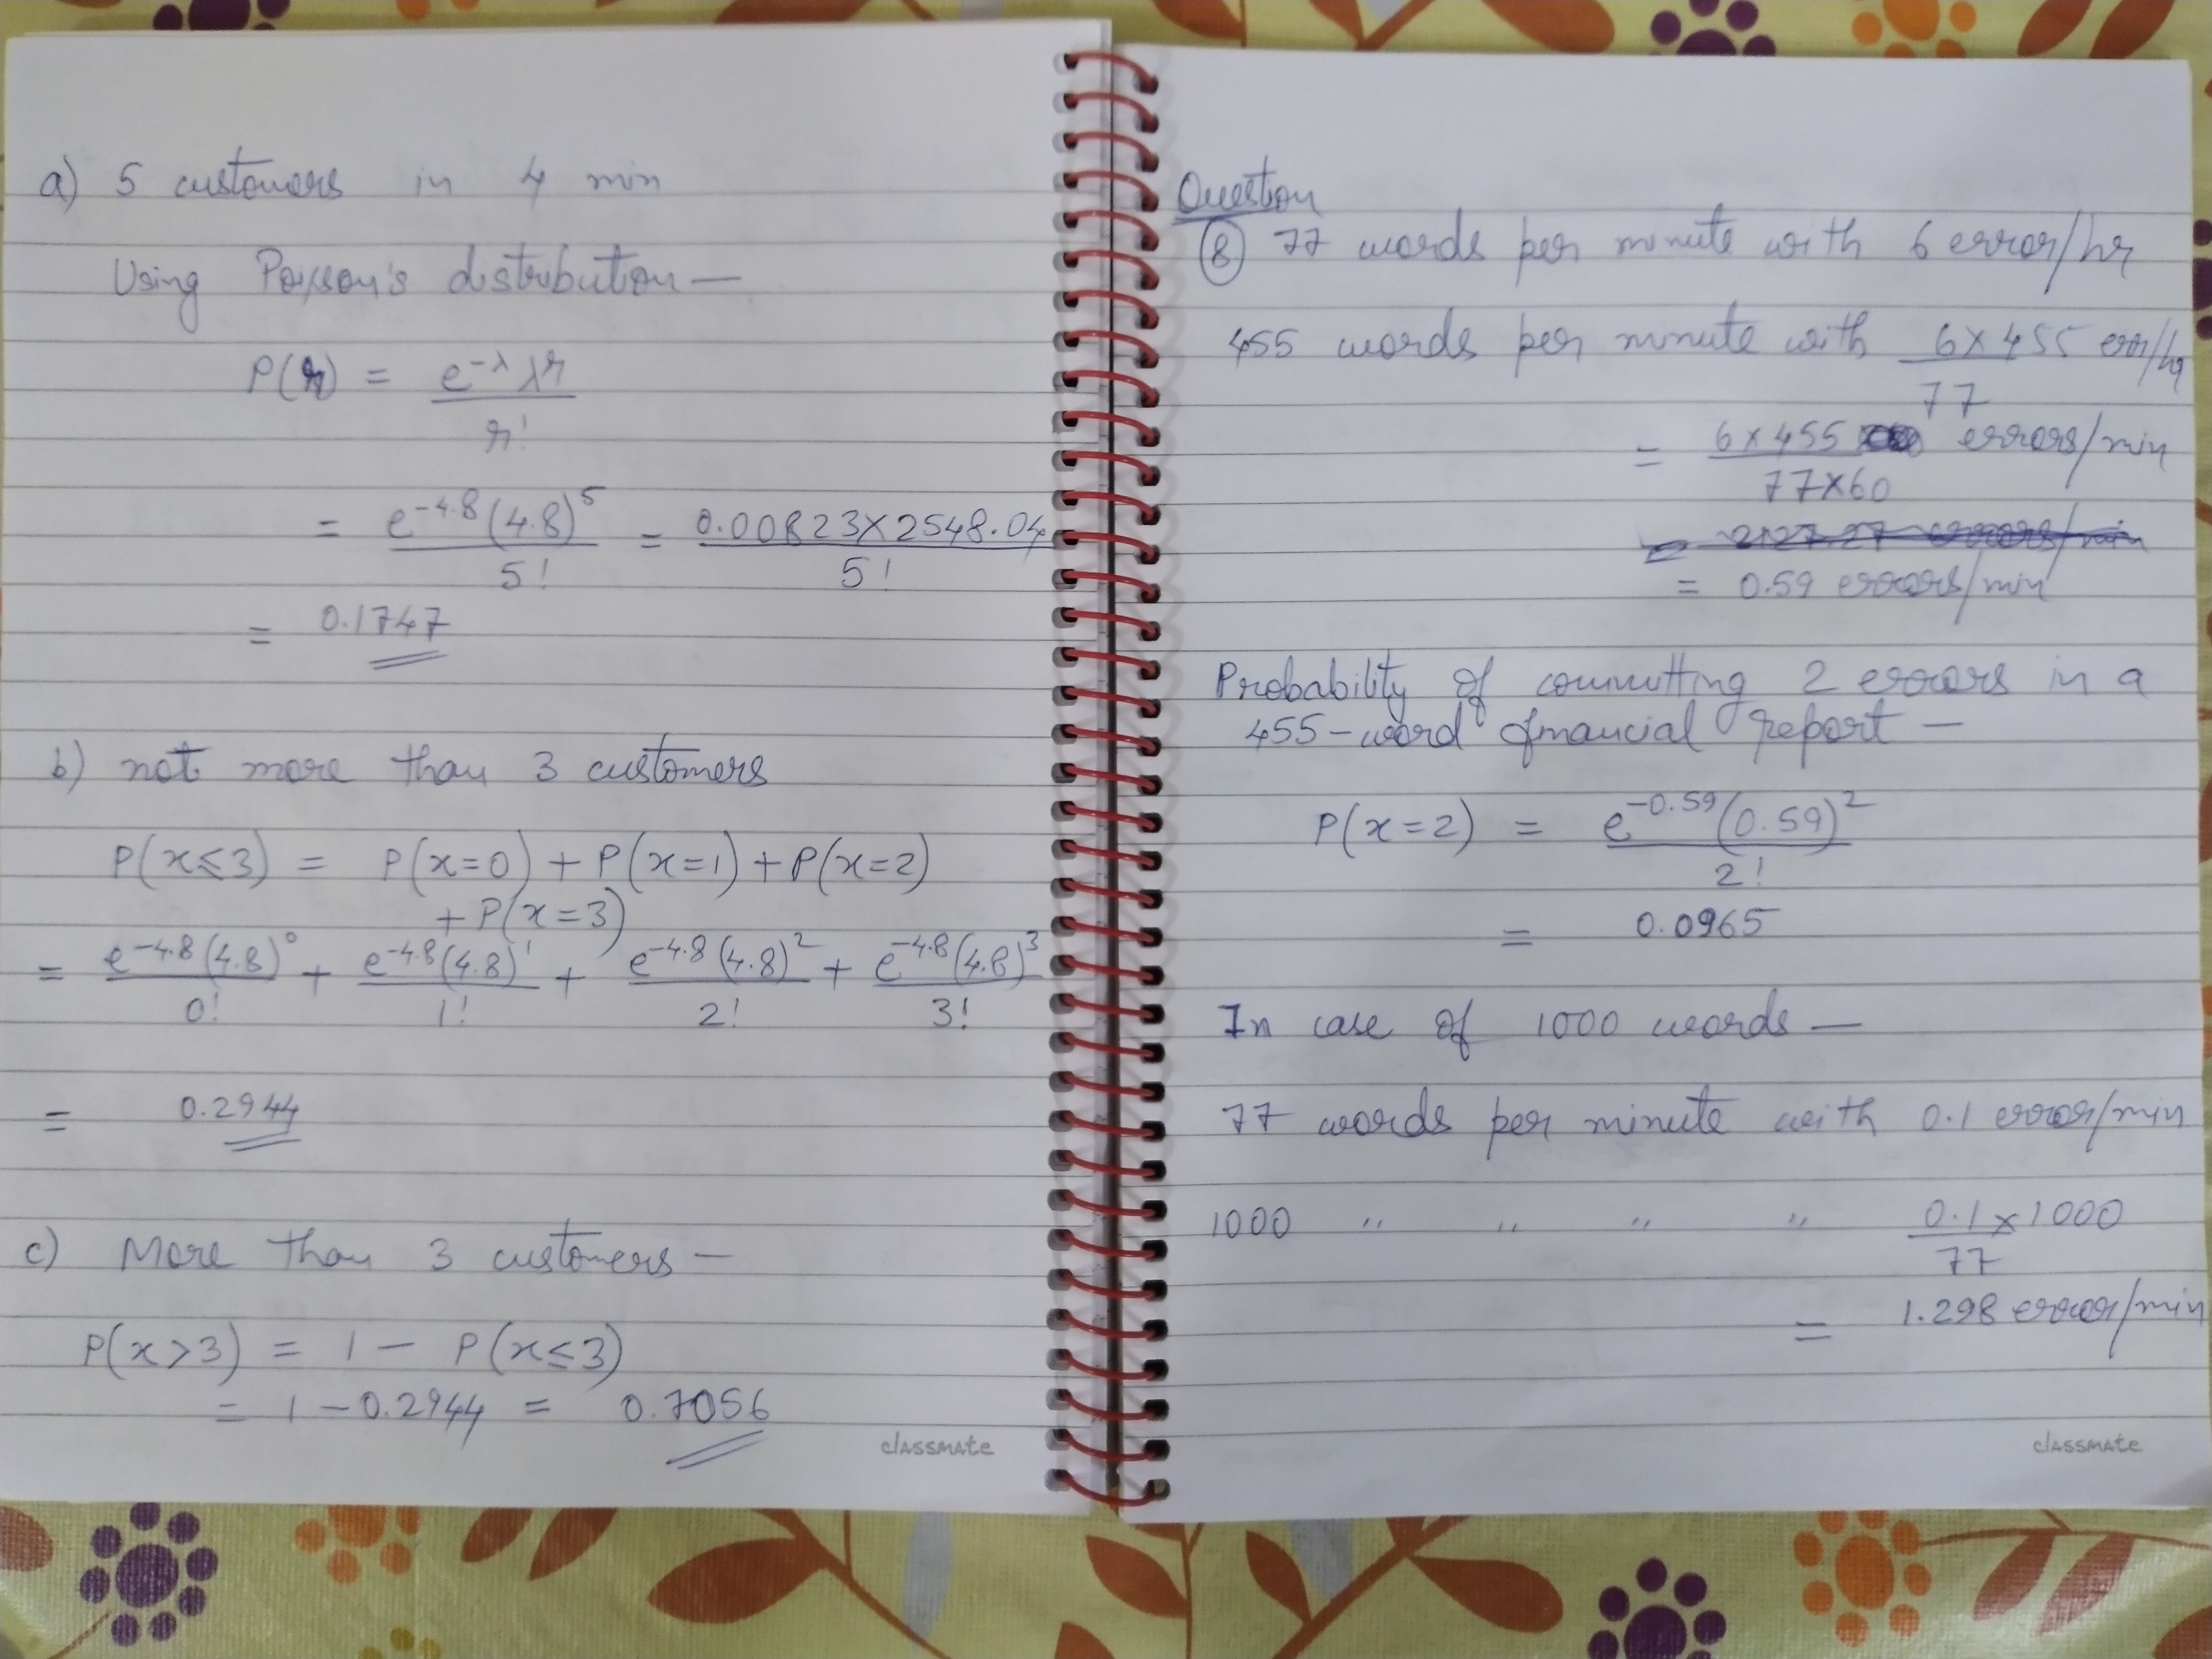 a) 5 customers in 4 min
Using Poisson's distribution —
P(r) = e^-λ λ^r
r!
= e^-4.8 (4.8)^5 = 0.00823×2548.04
5! 5!
= 0.1747
b) not more than 3 customers
P(x≤3) = P(x=0) + P(x=1) + P(x=2)
+ P(x=3)
= e^-4.8 (4.8)^0 + e^-4.8 (4.8)^1 + e^-4.8 (4.8)^2 + e^-4.8 (4.8)^3
0! 1! 2! 3!
= 0.2944
c) More than 3 customers —
P(x>3) = 1 - P(x≤3)
= 1 - 0.2944 = 0.7056
classmate
Question
8 77 words per minute with 6 error/hr
455 words per minute with 6×455 err/hr
77
= 6×455 errors/min
77×60
= 0.59 errors/min
Probability of committing 2 errors in a
455-word financial report —
P(x=2) = e^-0.59 (0.59)^2
2!
= 0.0965
In case of 1000 words —
77 words per minute with 0.1 error/min
1000 " " " " 0.1×1000
77
= 1.298 error/min
classmate